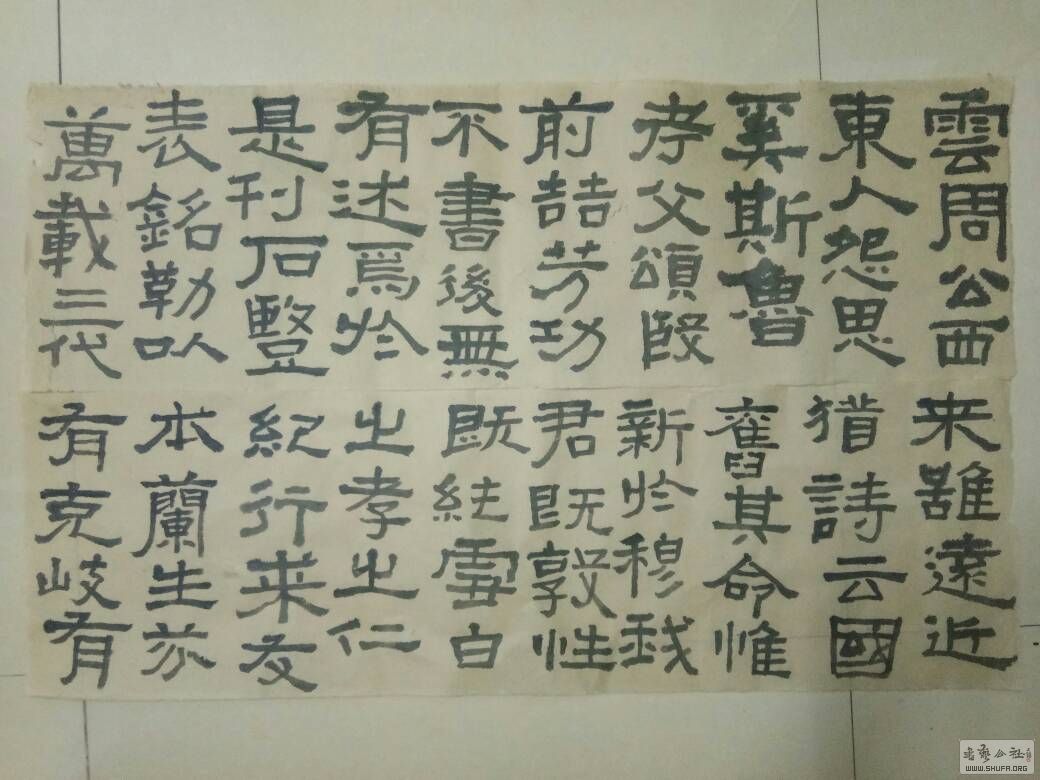 雲周公西
東人怨思
奚斯魯
考父頌殷
前喆芳功
不書後無
有述焉於
是刊石豎
表銘勒以
萬載三代
来雖遠近
猶詩云國
舊其命惟
新於穆我
君既敦性
既純雪白
之孝之仁
紀行来友
本蘭生芬
有克岐有
書藝公社
WWW.SHUFA.ORG